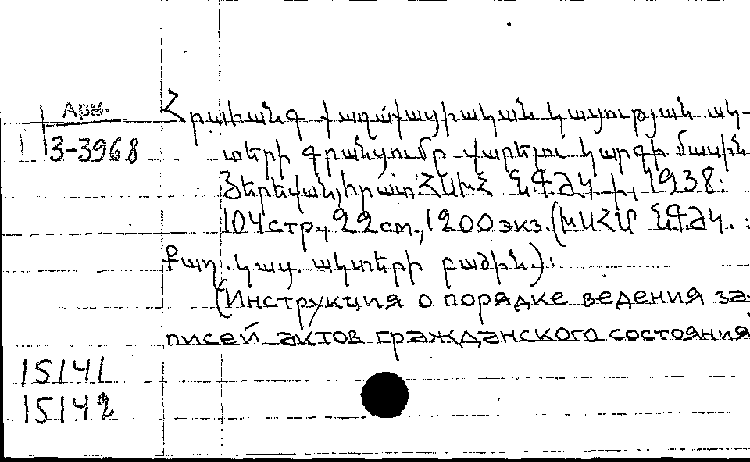 Арм.
3-3968
Հրահանգ քաղաքացիական կացության ակ-
տերի գրանցումը վարելու կարգի մասին
Յերեվան, հրատ. ՀՍԽՀ ՆԳԺԿ, 1938:
104 стр., 22 см., 1200 экз. (ԽՍՀՄ ՆԳԺԿ.:
քաղ. կաց. ակտերի բաժին):
(Инструкция о порядке ведения за-
писей актов гражданского состояния
15141
15142